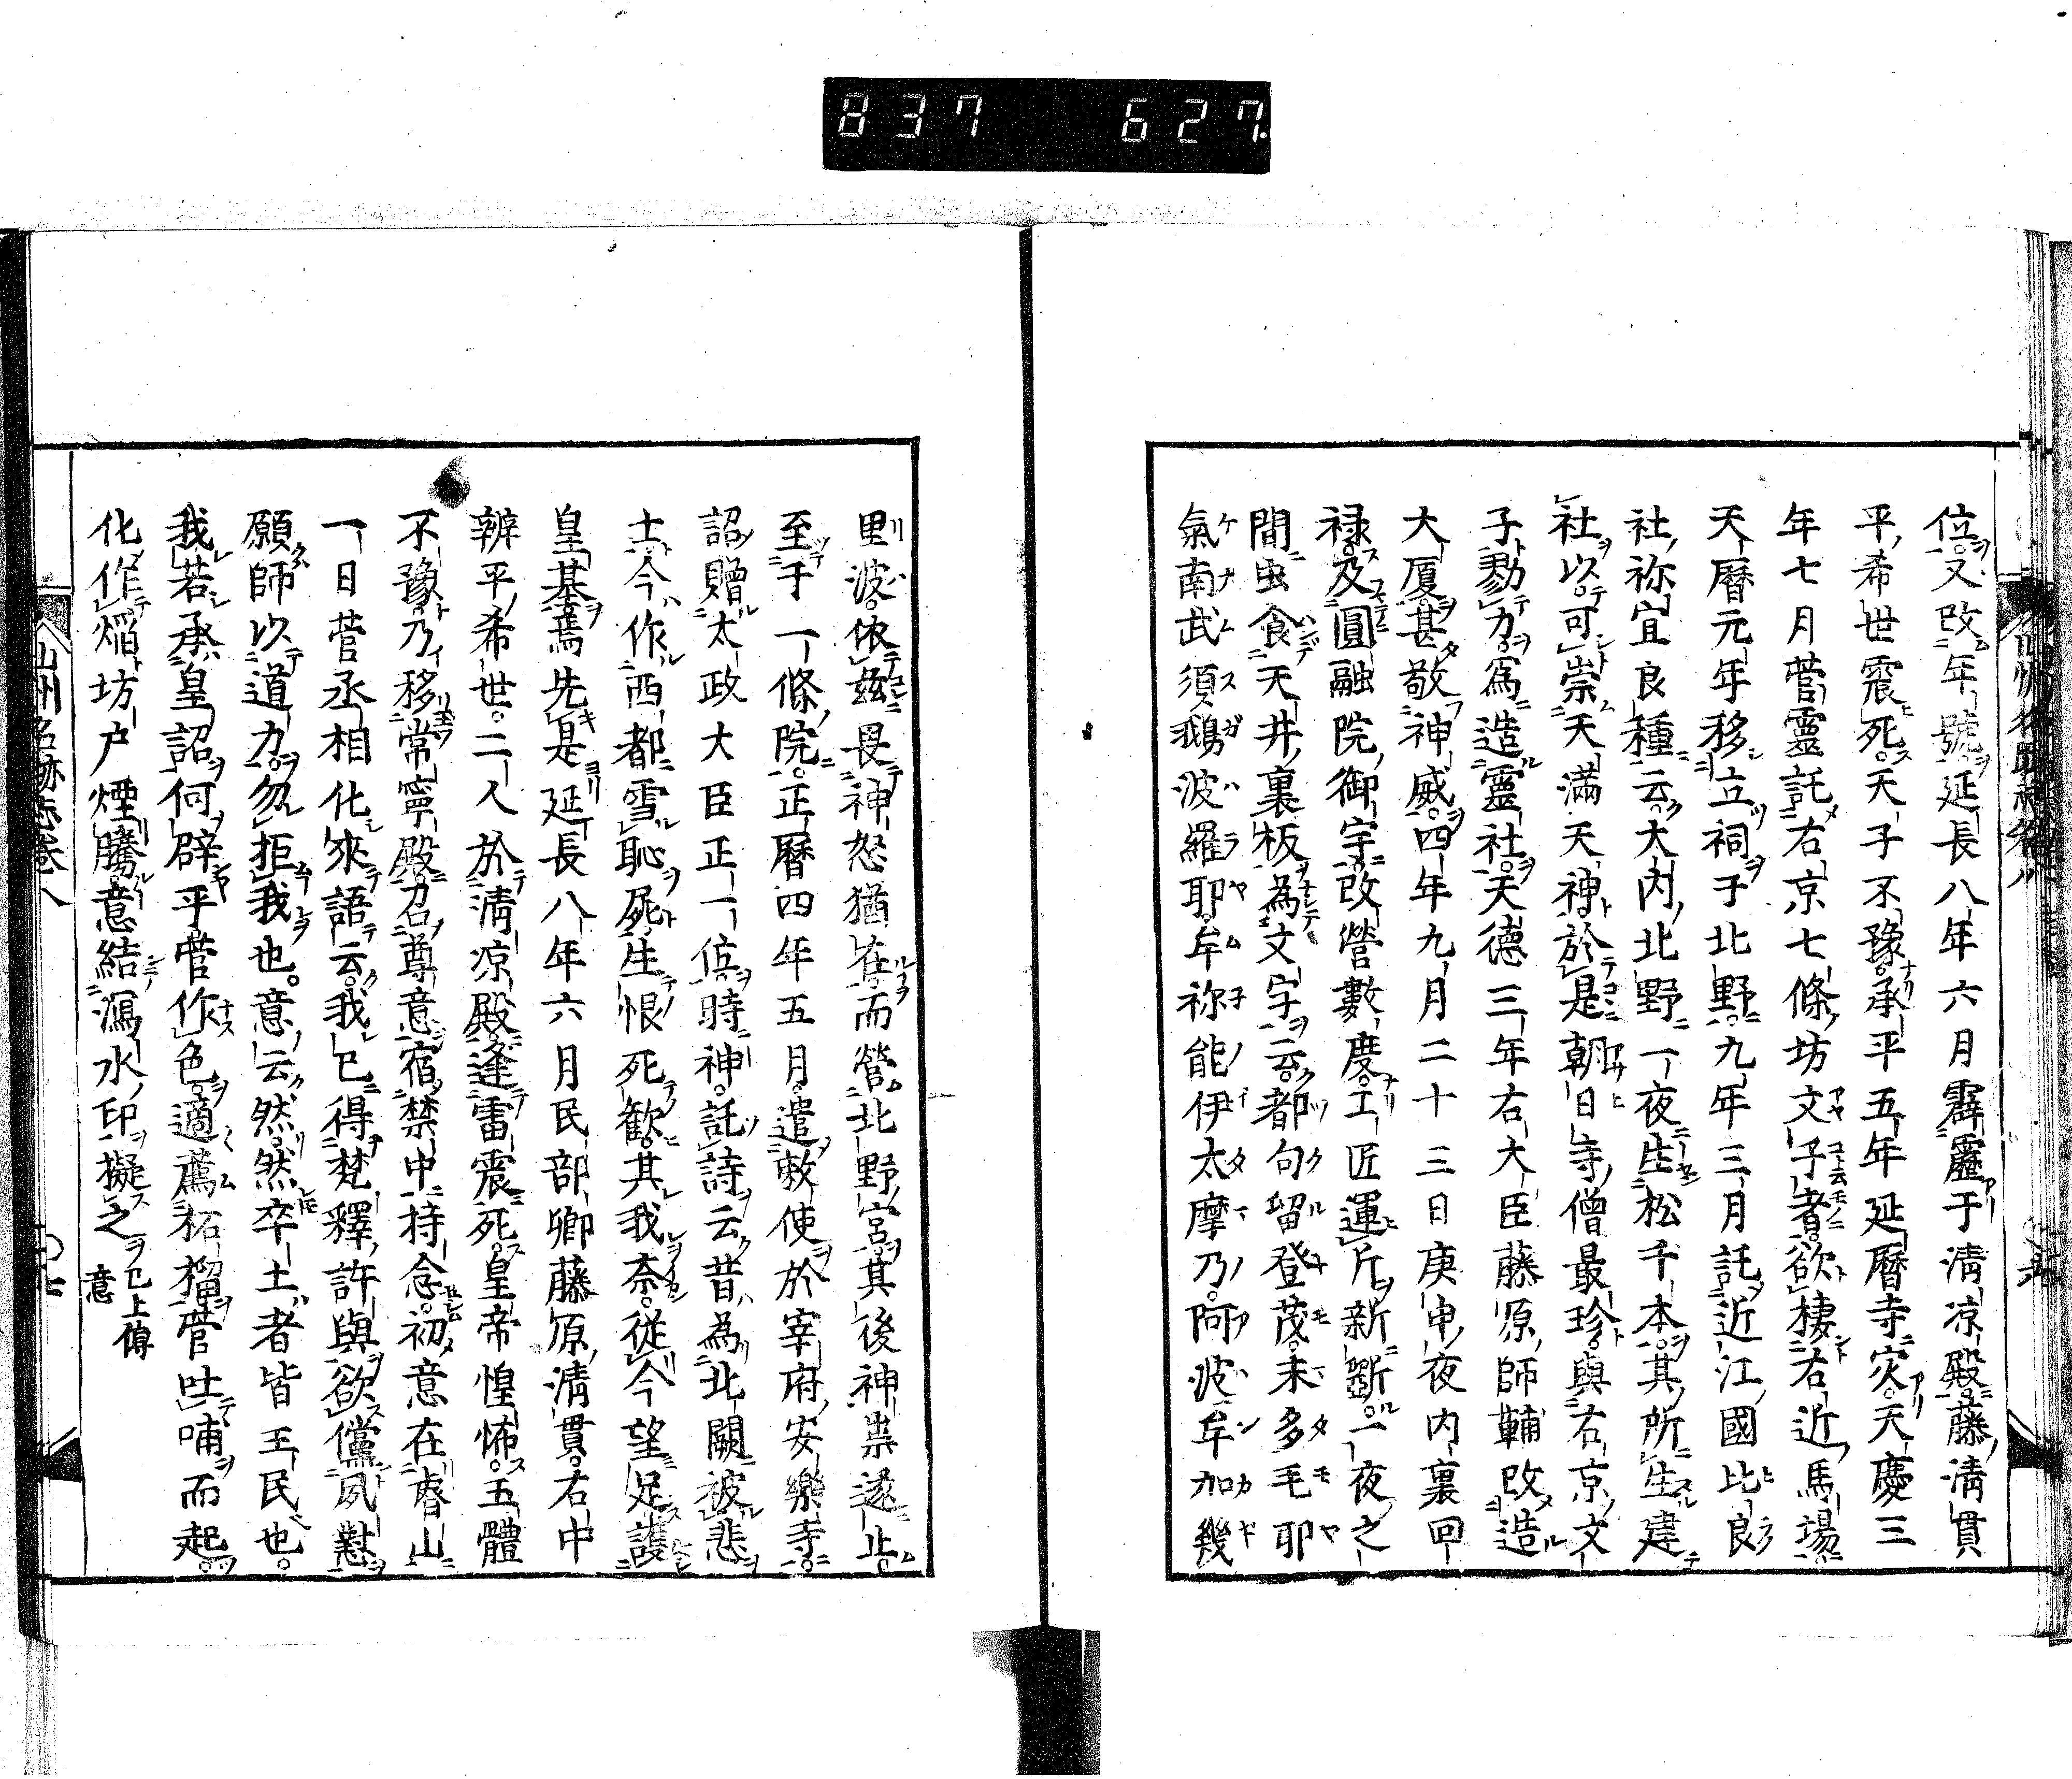 837 627.
位又改年號延長八年六月霹靂于淸凉殿藤淸貫
平希世震死天子不豫承平五年延曆寺灾天慶三
年七月菅靈託右京七條坊文子者欲棲右近馬場
天曆元年移立祠于北野九年三月託近江國比良
社祢宜良種云大內北野一夜生松千本其所生建
社以可崇天滿天神於是朝日寺僧最珍與右京文
子勠力爲造靈社天德三年右大臣藤原師輔改造
大厦甚敬神威四年九月二十三日庚申夜內裏回
祿及圓融院御宇改營數度工匠運斤新斵一夜之
間虫食天井裏板為文字云都句留登茂未多毛耶
氣南武須鵝波羅耶牟祢能伊太摩乃阿波牟加幾
里波依兹畏神怒猶在而營北野宮其後神祟遂止
至于一條院正曆四年五月遣敕使於宰府安樂寺
詔贈太政大臣正一位時神託詩云昔為北闕被悲
士今作西都雪恥屍生恨死歡其我奈從今望足護
皇基焉先是延長八年六月民部卿藤原淸貫右中
辨平希世二人於淸凉殿逢雷震死皇帝惶怖玉體
不豫乃移常寧殿召尊意宿禁中持念初意在睿山
一日菅丞相化來語云我已得梵釋許與欲償夙懟
願師以道力勿拒我也意云然然卒土者皆王民也
我若承皇詔何辟乎菅作色適薦柘榴菅吐哺而起
化作焰坊戶煙騰意結瀉水印擬之 已上傳意
山州名跡志卷八